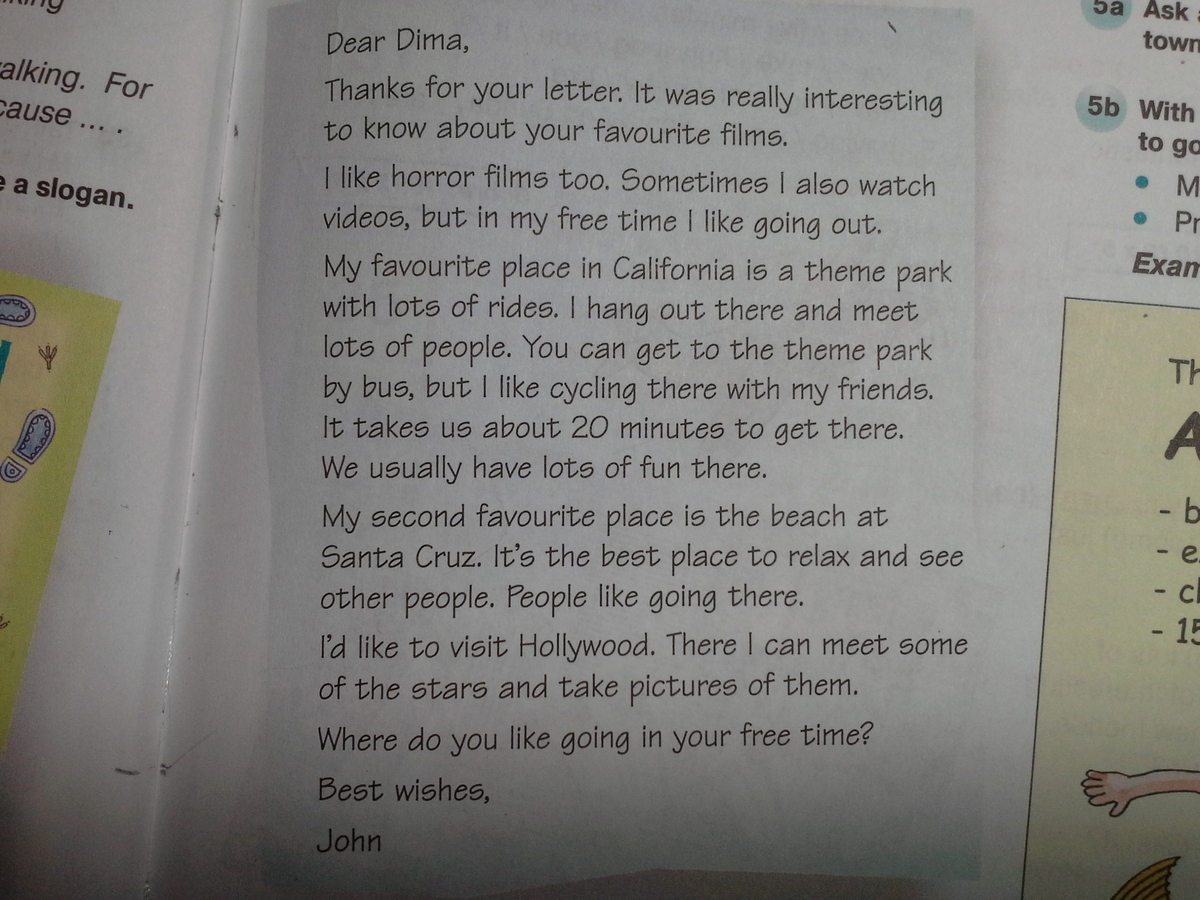 alking. For
cause ... .
a slogan.
Dear Dima,
Thanks for your letter. It was really interesting
to know about your favourite films.
I like horror films too. Sometimes I also watch
videos, but in my free time I like going out.
My favourite place in California is a theme park
with lots of rides. I hang out there and meet
lots of people. You can get to the theme park
by bus, but I like cycling there with my friends.
It takes us about 20 minutes to get there.
We usually have lots of fun there.
My second favourite place is the beach at
Santa Cruz. It's the best place to relax and see
other people. People like going there.
I'd like to visit Hollywood. There I can meet some
of the stars and take pictures of them.
Where do you like going in your free time?
Best wishes,
John
5a Ask
town
5b With
to go
• M
• Pr
Exam
Th
A
- b
- e
- cl
- 15